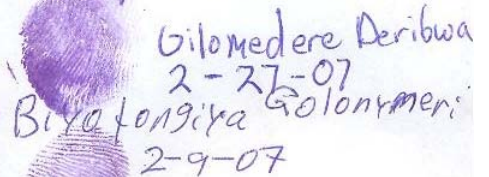 Gilomedere Deribwa
2-27-07
Biyotongiya Golonymeri
2-9-07